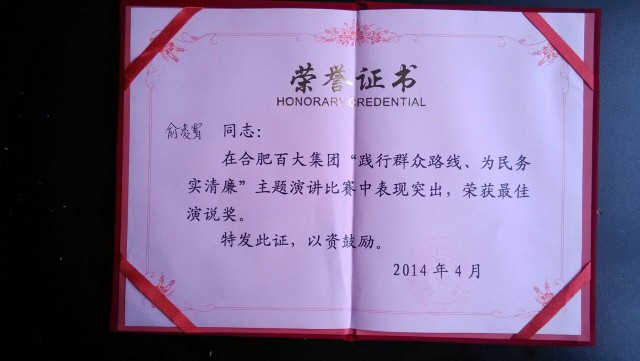 荣誉证书
HONORARY CREDENTIAL
同志：
在合肥百大集团“践行群众路线、为民务
实清廉”主题演讲比赛中表现突出，荣获最佳
演说奖。
特发此证，以资鼓励。
2014年4月